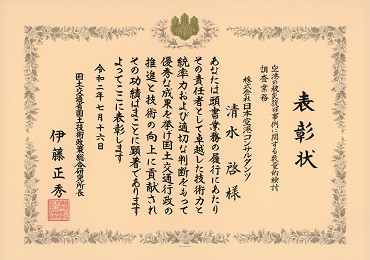 表彰状
空港の被災復旧事例に関する数量的検討
調査業務
株式会社日本空港コンサルタンツ
清水 啓 様
あなたは頭書業務の履行にあたり
その責任者として卓越した技術力と
統率力および適切な判断をもって
優秀な成果を挙げ国土交通行政の
推進と技術の向上に貢献され
その功績はまことに顕著であります
よってここに表彰します
令和二年七月十六日
国土交通省国土技術政策総合研究所長
伊藤正秀